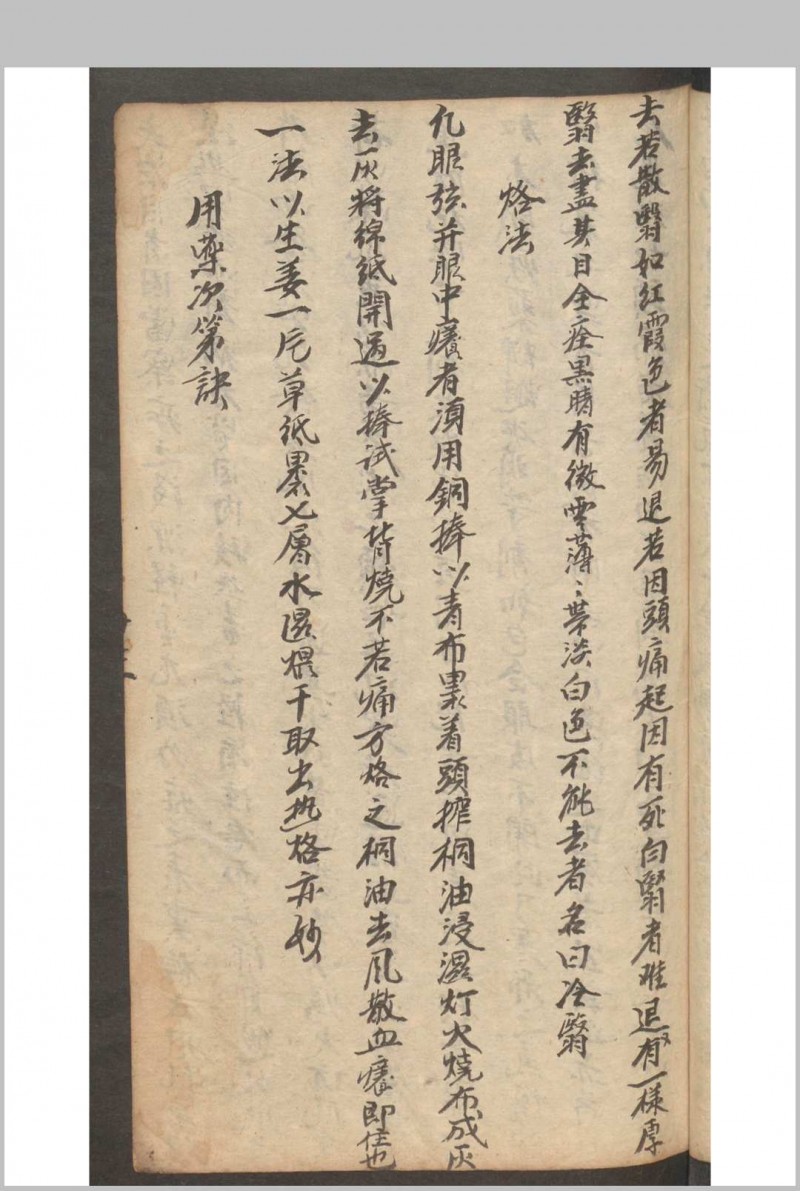 去若散翳如紅霞色者易退若因頭痛起因有死白翳者难退又有一樣厚
翳去盡其目全痊黑睛有微雲薄〻帶淡白色不能去者名曰冷翳
烙法
凡眼弦并眼中癢者須用銅捧以青布裹着頭搾桐油浸濕灯火燒布成灰
去灰將綿紙開過以捧試掌背燒不若痛方烙之桐油去風散血癢即住也
一法以生姜一片草紙裹七層水濕煨干取出热烙亦妙
用藥次第訣